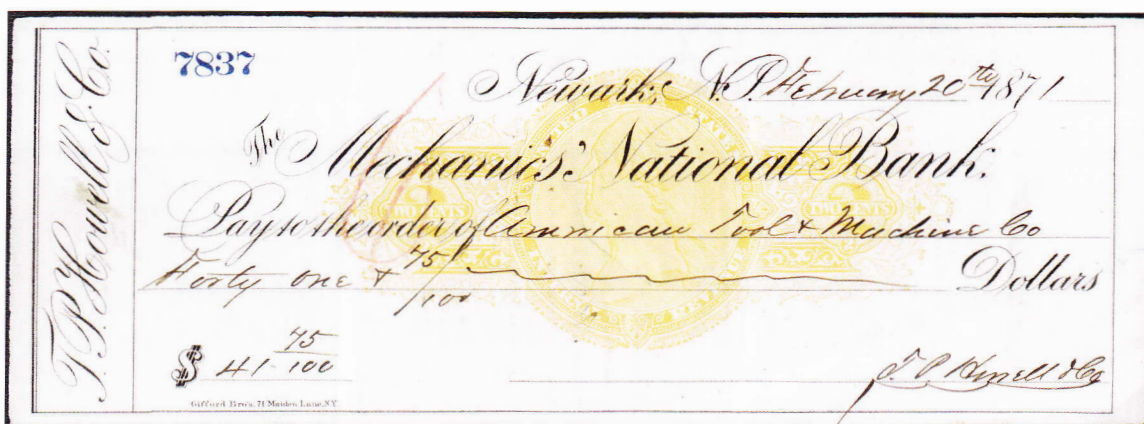 T.P. Howell & Co.
7837
Newark, N.J. February 20th 1871
The Mechanics' National Bank.
Pay to the order of American Tool & Machine Co
Forty one & 75/100 Dollars
$ 41 75/100
T. P. Howell & Co
Gifford Bro's. 71 Maiden Lane, N.Y.
UNITED STATES
2
TWO CENTS
2
TWO CENTS